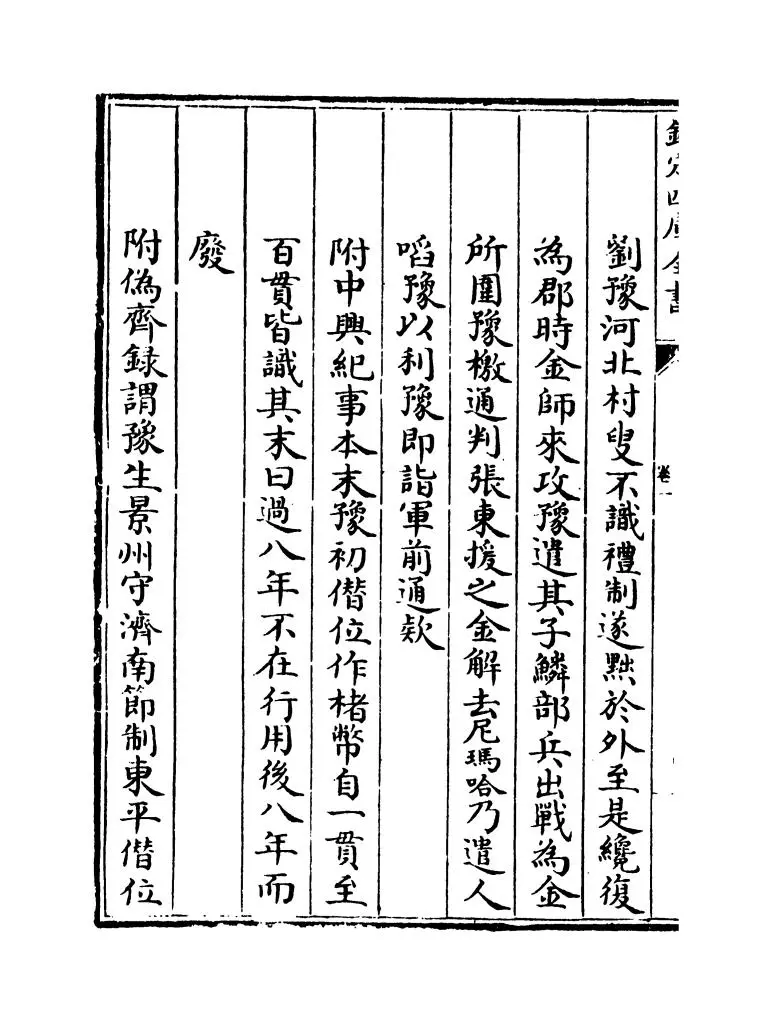 欽定四庫全書
卷一
劉豫河北村叟不識禮制遂黜於外至是纔復
為郡時金師來攻豫遣其子鱗部兵出戰為金
所圍豫檄通判張東援之金解去尼瑪哈乃遣人
㗖豫以利豫即詣軍前通欵
附中興紀事本末豫初僭位作楮幣自一貫至
百貫皆識其末曰過八年不在行用後八年而
廢
附偽齊録謂豫生景州守濟南節制東平僭位